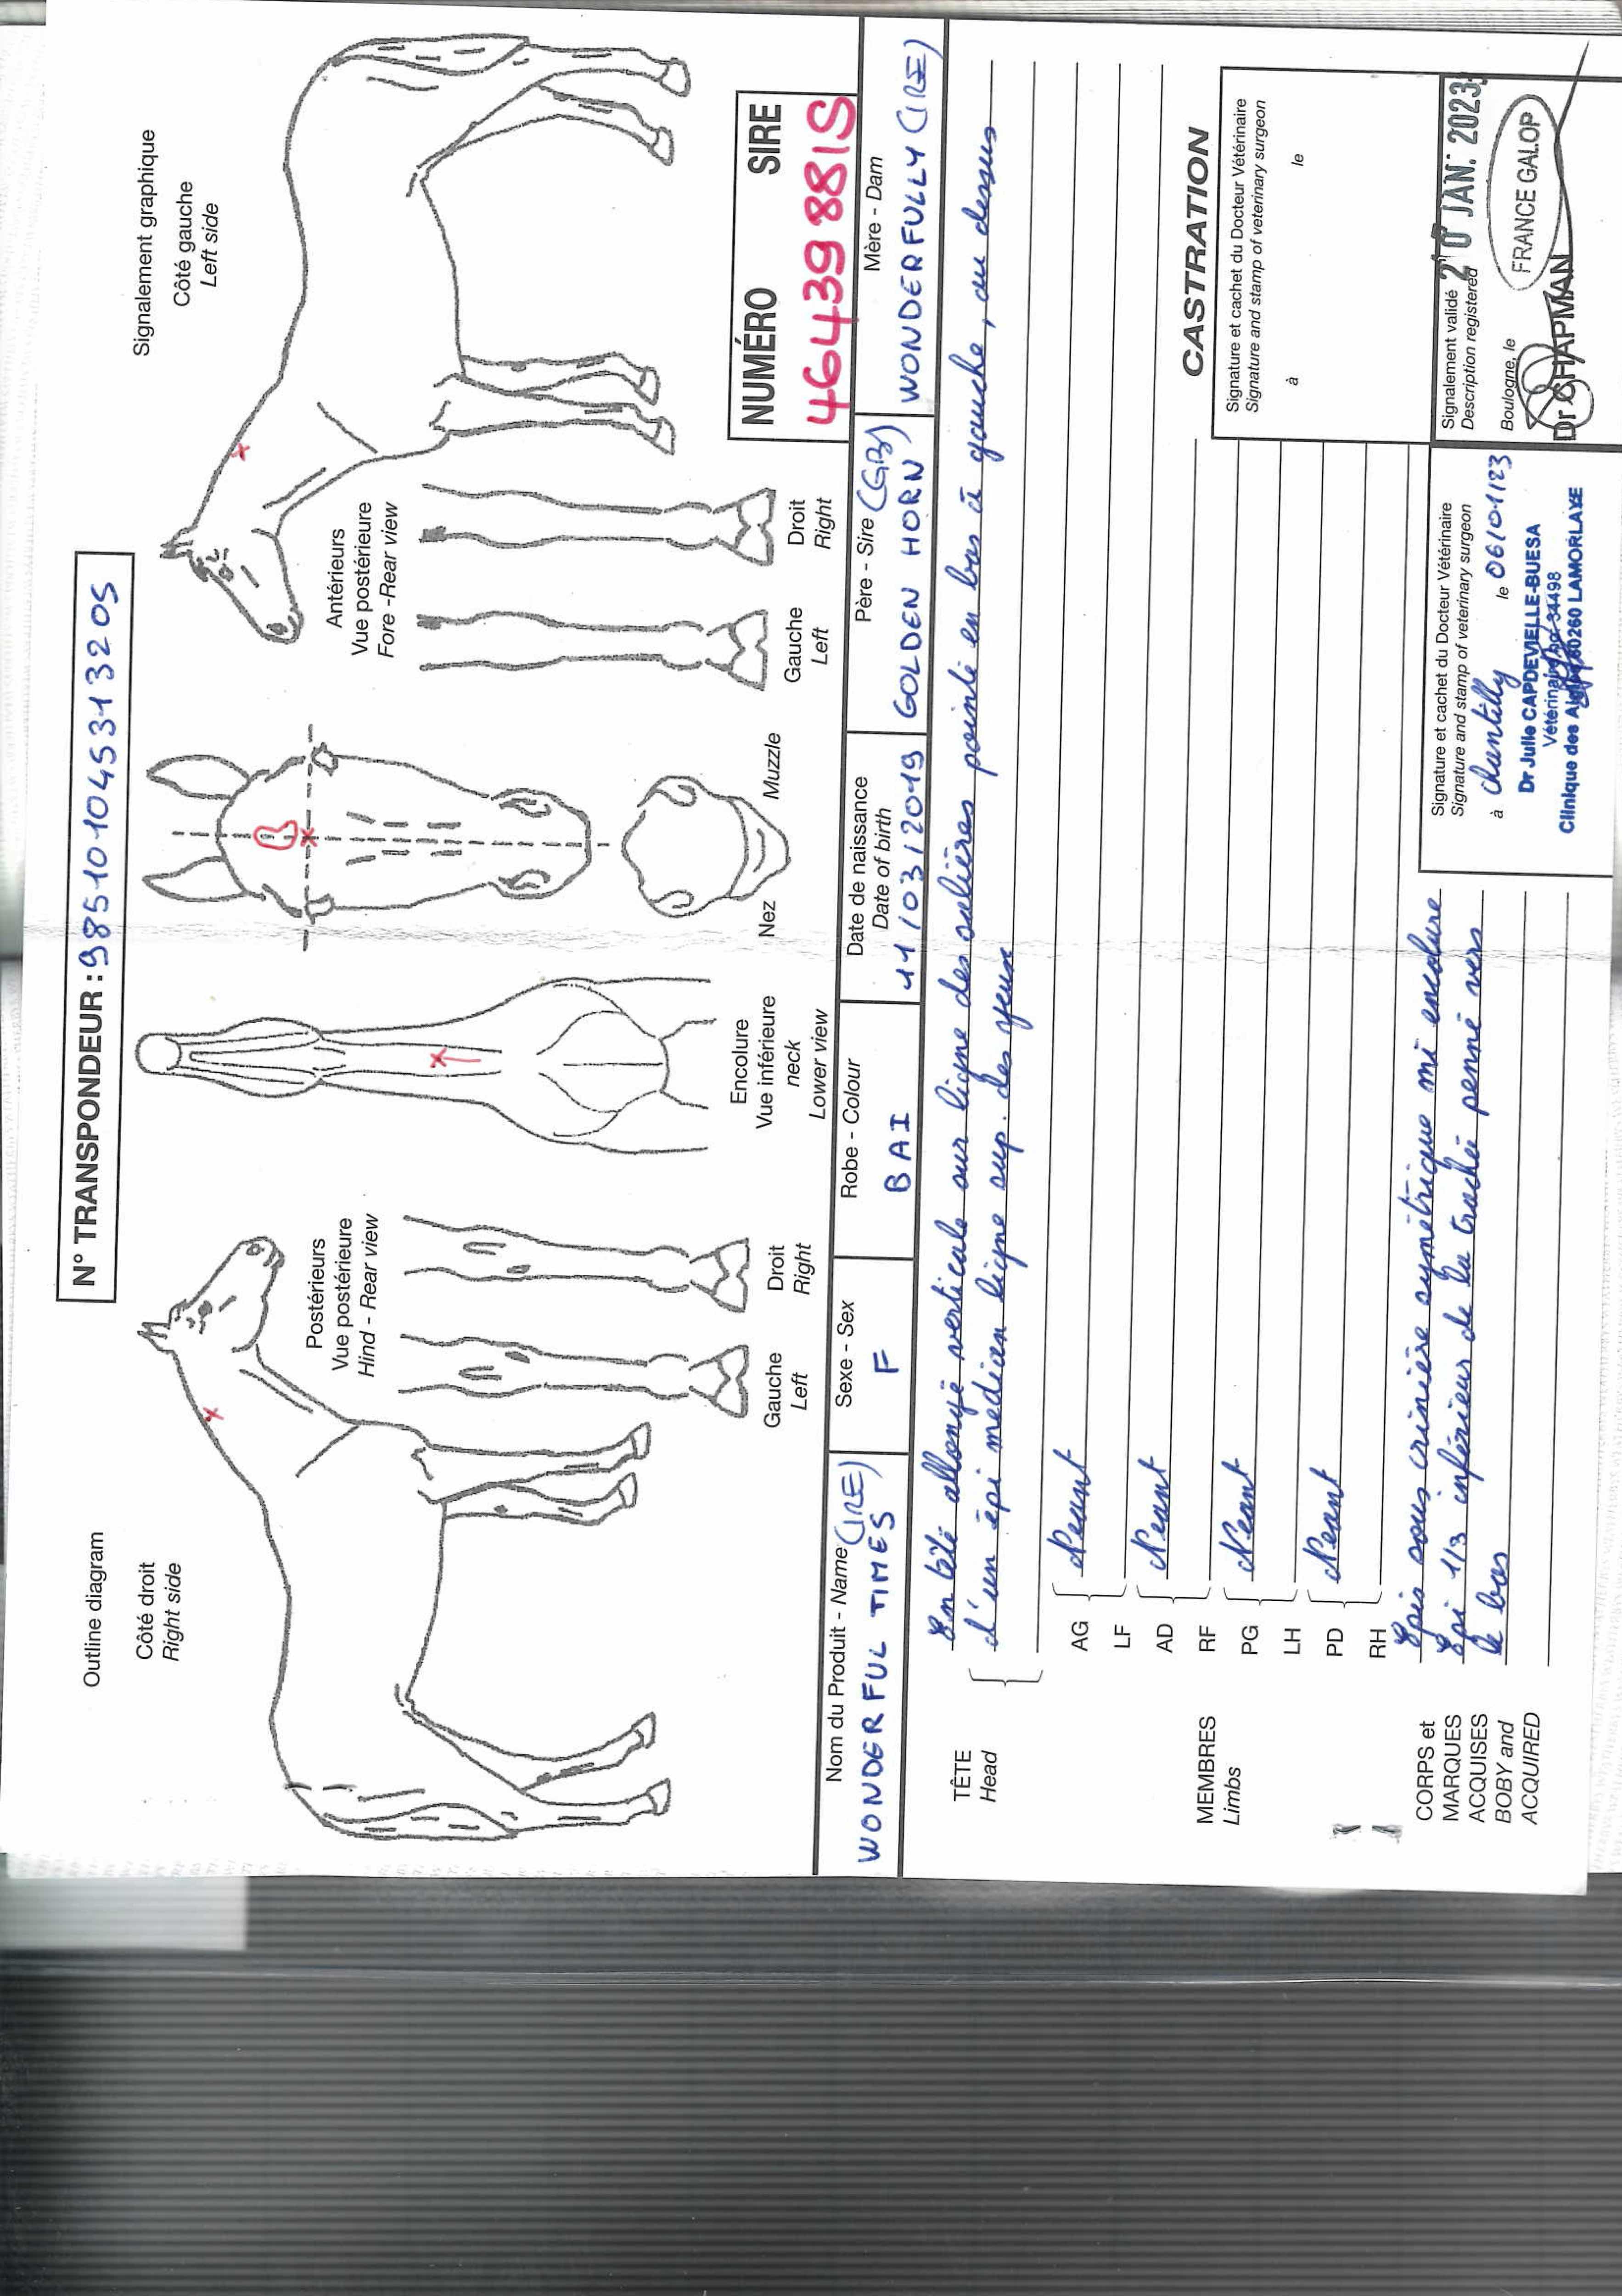 N° TRANSPONDEUR : 985101045313205
Outline diagram
Signalement graphique
Côté droit
Right side
Côté gauche
Left side
Postérieurs
Vue postérieure
Hind - Rear view
Gauche
Left
Droit
Right
Encolure
Vue inférieure
neck
Lower view
Nez
Muzzle
Antérieurs
Vue postérieure
Fore -Rear view
Gauche
Left
Droit
Right
NUMÉRO SIRE
46439881S
Nom du Produit - Name (IRE)
WONDERFUL TIMES
Sexe - Sex
F
Robe - Colour
BAI
Date de naissance
Date of birth
11/03/2019
Père - Sire (GB)
GOLDEN HORN
Mère - Dam
WONDERFULLY (IRE)
TÊTE
Head
En tête allongé verticale sur ligne des salières pointé en bas à gauche, au dessus
d'un épi médian ligne sup. des yeux
MEMBRES
Limbs
AG
LF
Néant
AD
RF
Néant
PG
LH
Néant
PD
RH
Néant
CORPS et
MARQUES
ACQUISES
BOBY and
ACQUIRED
Epis sous crinière symétrique mi encolure
Epi 1/3 inférieur de la trachée penné vers
le bas
CASTRATION
Signature et cachet du Docteur Vétérinaire
Signature and stamp of veterinary surgeon
à le
Signature et cachet du Docteur Vétérinaire
Signature and stamp of veterinary surgeon
à Chantilly le 06/01/23
Dr Julie CAPDEVIELLE-BUESA
Vétérinaire 34498
Clinique des 60260 LAMORLAYE
Signalement validé 20 JAN. 2023
Description registered
Boulogne, le
FRANCE GALOP
Dr CHAPMAN